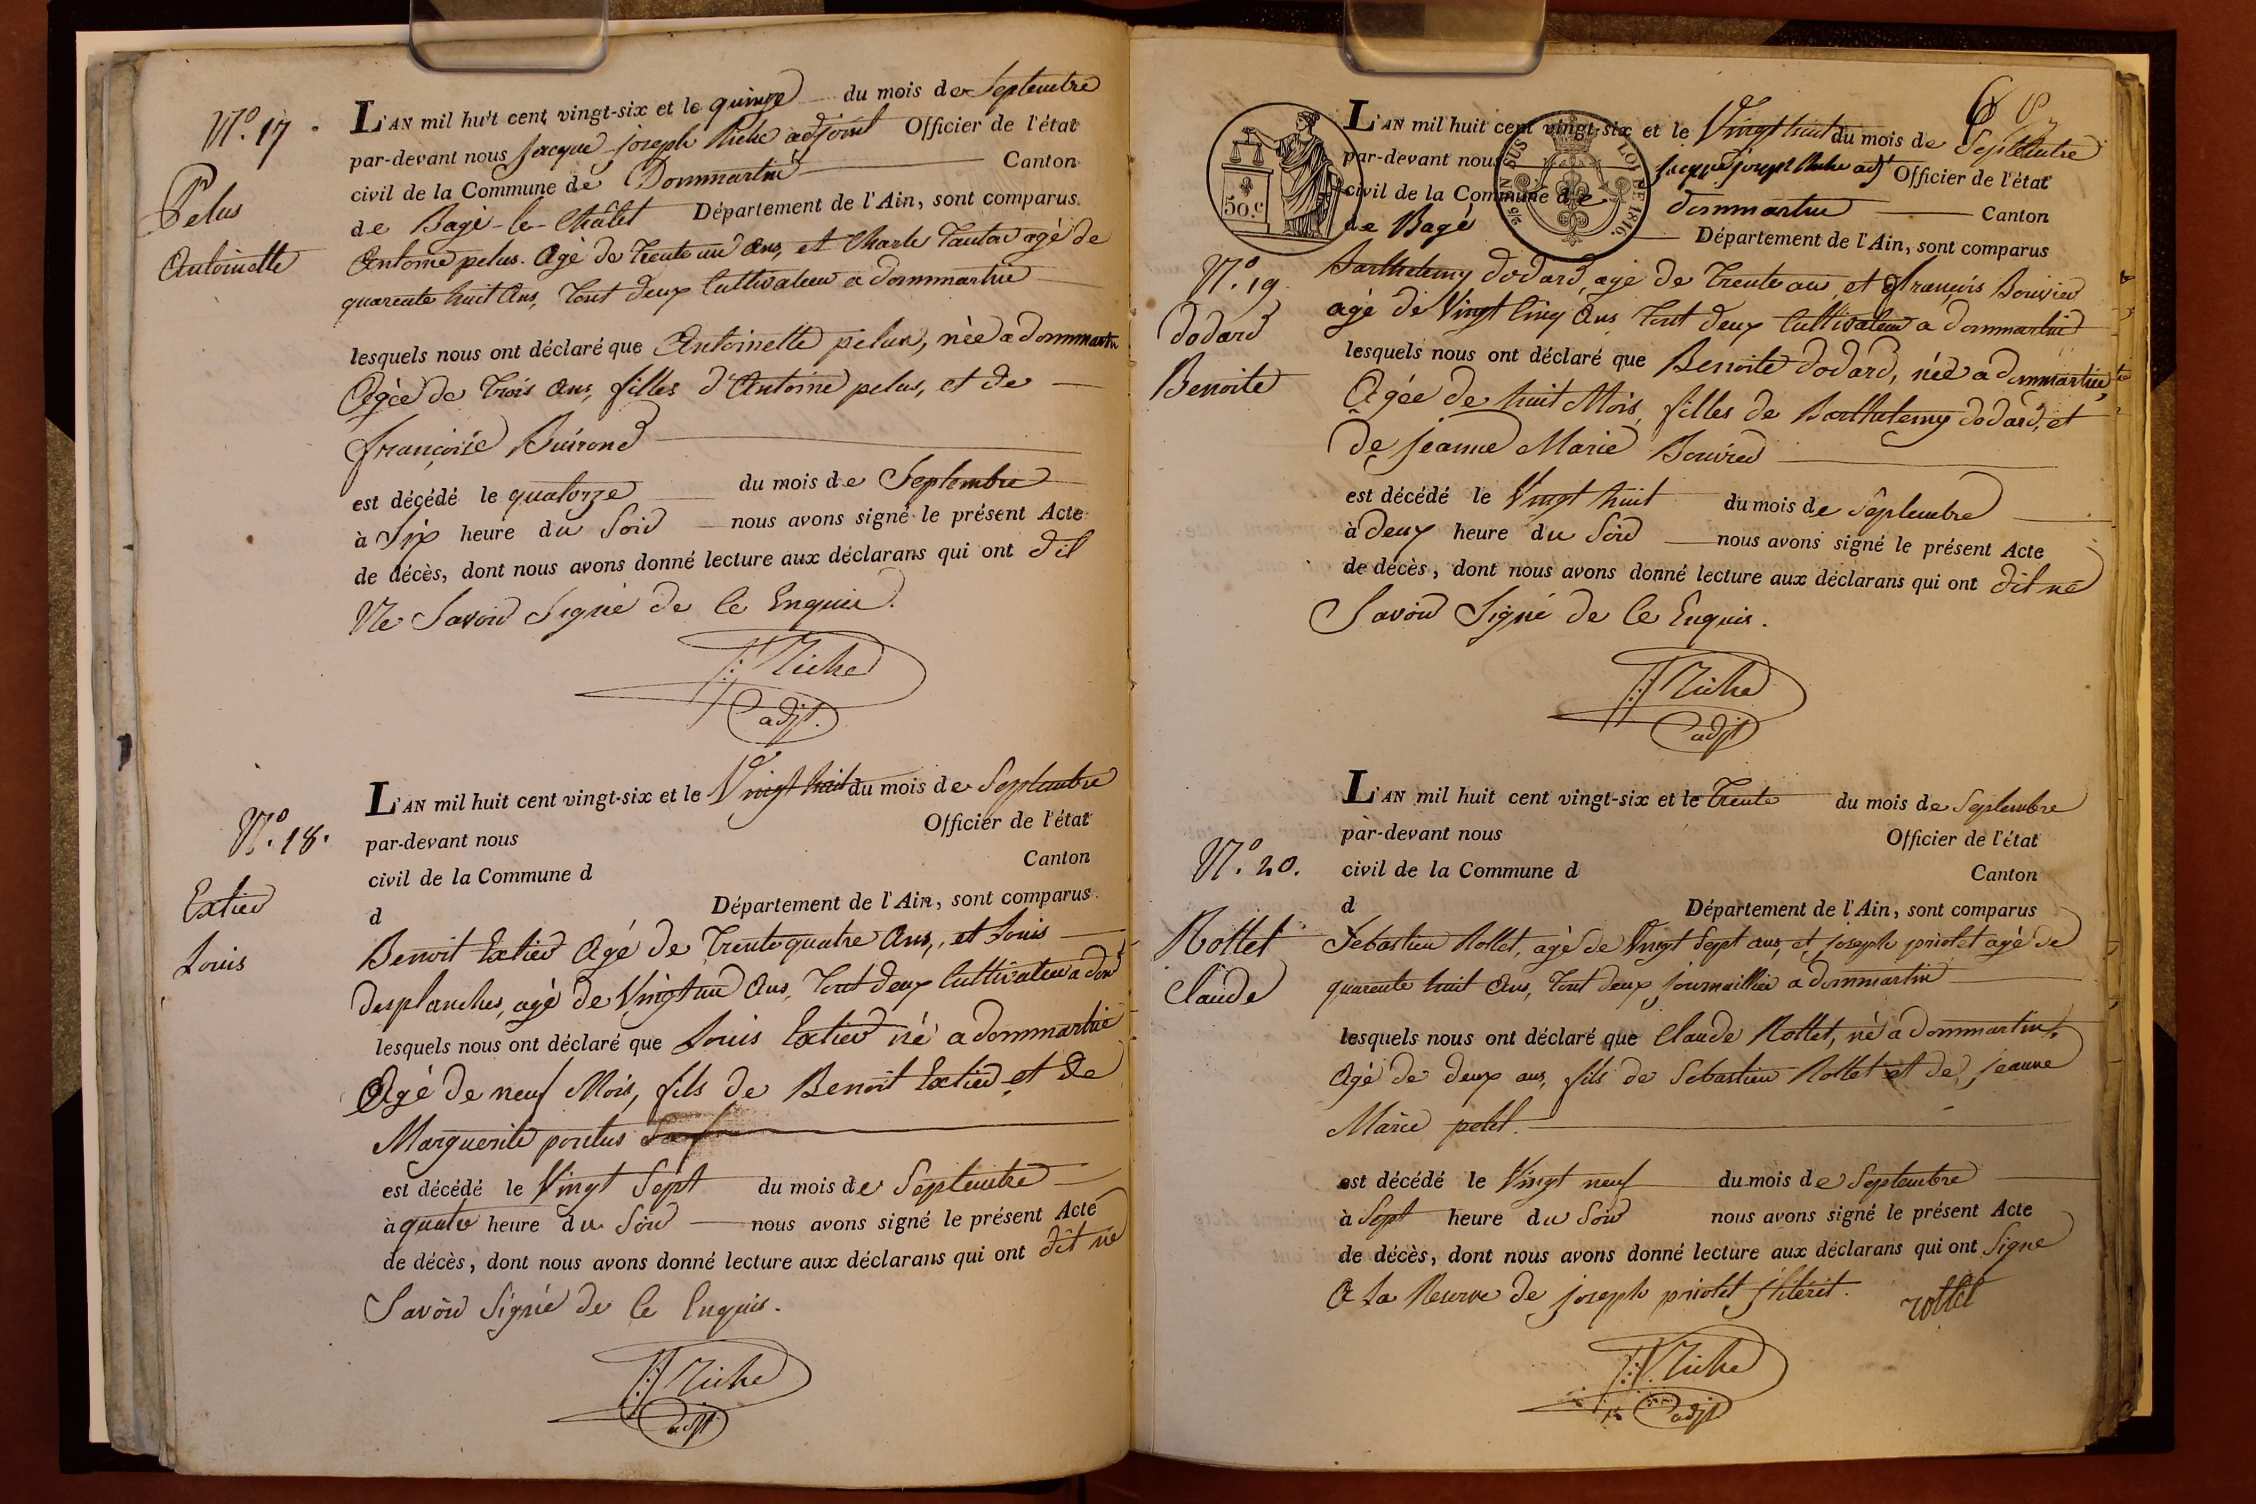 N.º 17.
Pelus
Antoinette
L'AN mil huit cent vingt-six et le quinze du mois de Septembre
par-devant nous Jacque joseph Niche adjoint Officier de l'état
civil de la Commune de Dommartin Canton
de Bagé-le-Châtel Département de l'Ain, sont comparus
Antoine pelus. Agé de trente un Ans, et Charle agé de
quarente huit Ans, tout deux Cultivateur a dommartin
lesquels nous ont déclaré que Antoinette pelus, née a dommartin
Agée de trois Ans, filles d'Antoine pelus, et de
françoise Buirond
est décédé le quatorze du mois de Septembre
à Six heure du Soir nous avons signé le présent Acte
de décès, dont nous avons donné lecture aux déclarans qui ont dit
Ne Savoir Signé de Ce Enquis.
Niche
adjt.
N.º 18.
Extier
Louis
L'AN mil huit cent vingt-six et le Vingt huit du mois de Septembre
par-devant nous Officier de l'état
civil de la Commune d Canton
d Département de l'Ain, sont comparus
Benoit Extier Agé de trente quatre Ans, et Louis
desplanches, agé de Vingt un Ans, tout deux Cultivateur a dom
lesquels nous ont déclaré que Louis Extier né a dommartin
Agé de neuf Mois, fils de Benoit Extier et de
Marguerite
est décédé le Vingt Sept du mois de Septembre
à quatre heure du Soir nous avons signé le présent Acte
de décès, dont nous avons donné lecture aux déclarans qui ont dit ne
Savoir Signé de Ce Enquis.
Niche
adjt
68
50.c
EN SUS
LOI DE 1816.
L'AN mil huit cent vingt-six et le Vingt huit du mois de Septembre
par-devant nous Jacque joseph Niche adjt Officier de l'état
civil de la Commune de dommartin Canton
de Bagé Département de l'Ain, sont comparus
N.º 19.
dodard
Benoite
Barthelemy dodard, agé de trente ans, et françois Bouvier
agé de Vingt Cinq Ans tout deux Cultivateur a dommartin
lesquels nous ont déclaré que Benoite dodard, née a dommartin,
Agée de huit Mois, filles de Barthelemy dodard, et
de Jeanne Marie Bouvier
est décédé le Vingt huit du mois de Septembre
à deux heure du Soir nous avons signé le présent Acte
de décès, dont nous avons donné lecture aux déclarans qui ont dit ne
Savoir Signé de Ce Enquis.
Niche
adjt
N.º 20.
Rollet
Claude
L'AN mil huit cent vingt-six et le trente du mois de Septembre
par-devant nous Officier de l'état
civil de la Commune d Canton
d Département de l'Ain, sont comparus
Sebastien Rollet, agé de Vingt Sept ans, et joseph priolet agé de
quarente huit Ans, tout deux journaillier a dommartin
lesquels nous ont déclaré que Claude Rollet, né a dommartin,
Agé de deux ans, fils de Sebastien Rollet et de jeanne
Marie petit.
est décédé le Vingt neuf du mois de Septembre
à Sept heure du Soir nous avons signé le présent Acte
de décès, dont nous avons donné lecture aux déclarans qui ont Signé
A La Reserve de joseph priolet jlitérét.
rollet
Niche
adjt